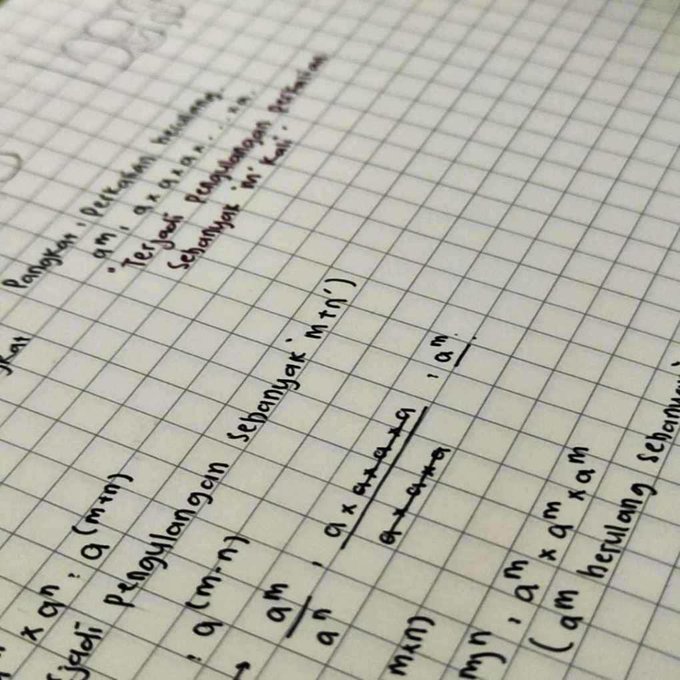 Pangkat : perkalian berulang.
aᵐ : a × a × a × ... × a.
"Terjadi pengulangan perkalian
sebanyak 'm' kali.
gkat
× aⁿ : a(m+n)
jadi pengulangan sebanyak 'm+n')
: a(m-n)
→ aᵐ/aⁿ : a × a × a × a/a × a × a : aᵐ.
m×n)
m)n : aᵐ × aᵐ × aᵐ
(aᵐ berulang sebanyak